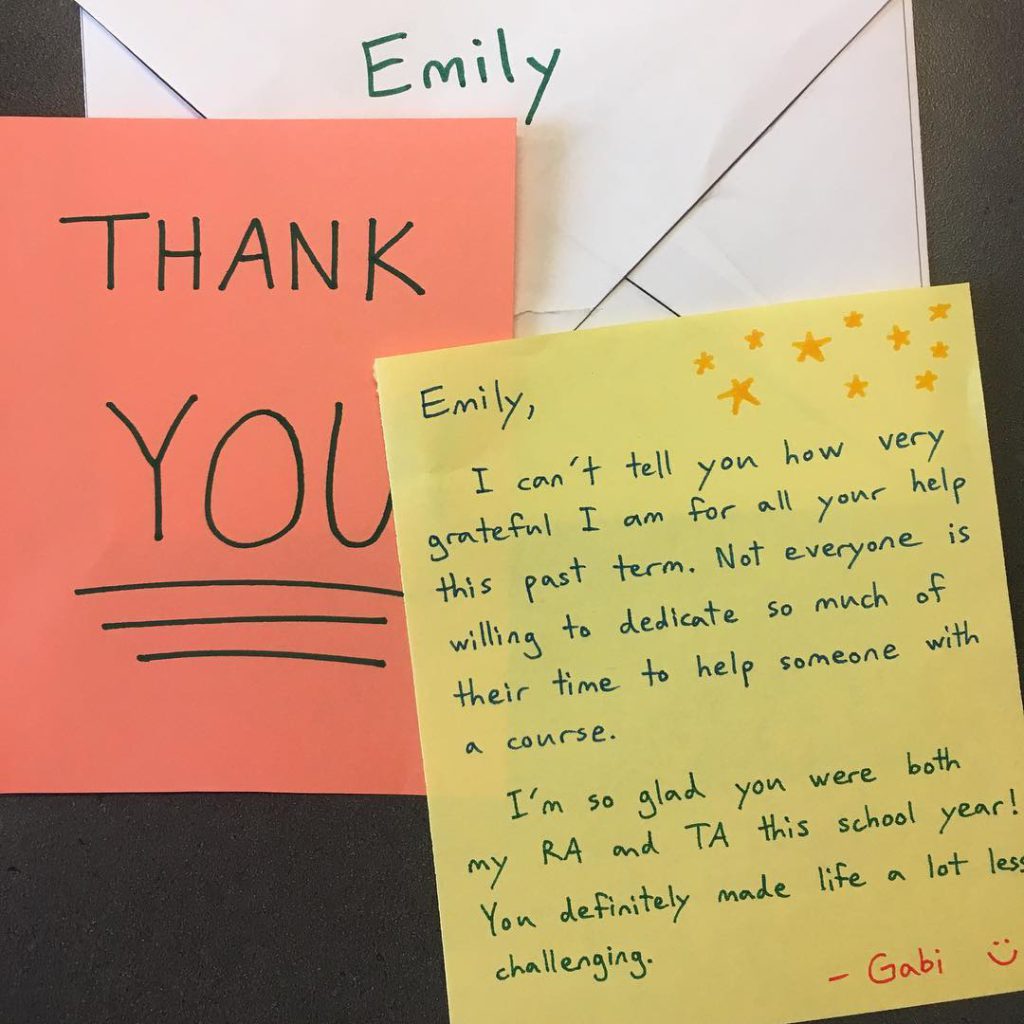 Emily
THANK
YOU
Emily,
I can't tell you how very
grateful I am for all your help
this past term. Not everyone is
willing to dedicate so much of
their time to help someone with
a course.
I'm so glad you were both
my RA and TA this school year!
You definitely made life a lot less
challenging.
- Gabi